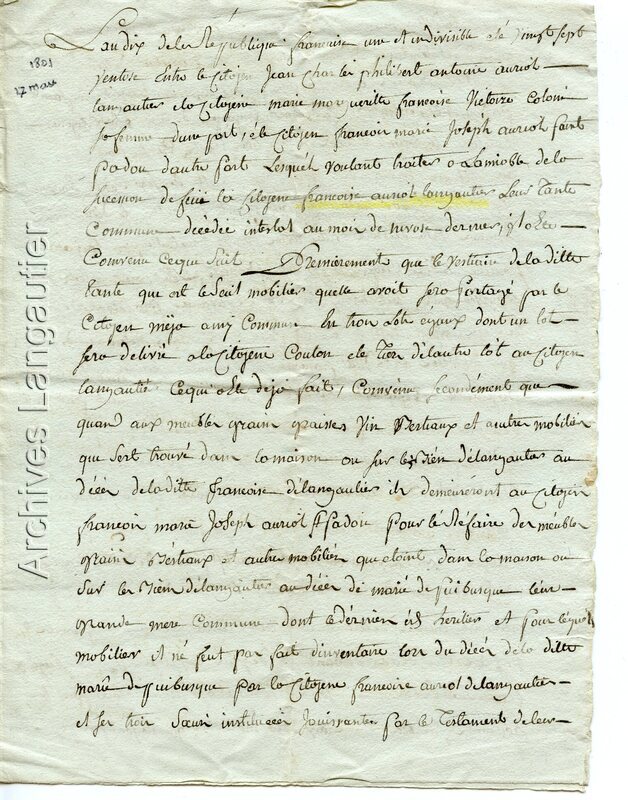 L'an dix de la République francoise une et indivisible et le vingt sept
1801
17 mars
ventose Entre le Citoyen Jean Charles philibert antoine auriol
langautier et la Citoyene marie marguerite francoise Victoire Colom
sa femme d'une part, et le Citoyen francois marie Joseph auriol saint
padou d'autre part Lesquels voulant traiter a Lamiable de la
sucession de feüe la Citoyene francoise auriol langautier Leur Tante
Commune décédée intestat au mois de nivose dernier, il a Eté
Convenu Ce que suit. Premièrement que le vestiaire de la ditte
tante que est le seul mobilier quelle avoit sera partagé par le
Citoyen méja amy Commun En trois lots egaux dont un lot
sera delivré a la Citoyene Coulon et le Tiers de l'autre lot au Citoyen
langautier Ce qui a Eté dejà fait, Convenu secondément que
quand aux meubles grains pailles vin Bestiaux et autre mobilier
que s'est trouvé dans la maison ou sur le Bien de langautier au
décés de la ditte francoise de langautier ils demeureront au Citoyen
francois marie Joseph auriol St padou pour le Réfaire des meubles
grains Béstiaux et autre mobilier que etoint dans la maison ou
Sur les Biens de langautier au décés de marie de puibusque leur
grande mere Commune dont ce dernier est héritier et pour lequel
mobilier il ne feut pas fait d'inventaire lors du décés de la ditte
marie de puibusque par la Citoyene francoise auriol de langautier
et ses trois Sœurs instituées Jouissantes par le Testament de leur
Archives Langautier